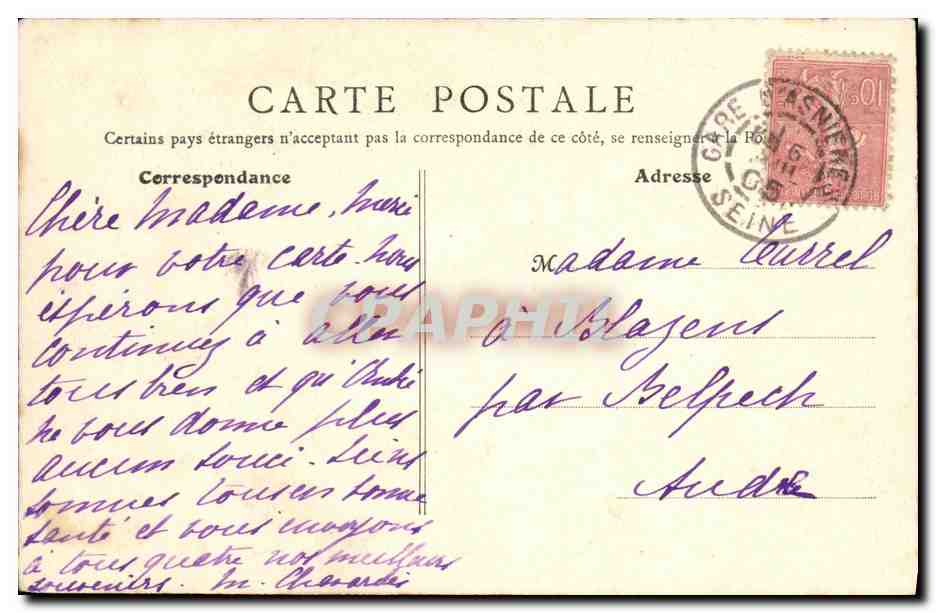 CARTE POSTALE
Certains pays étrangers n'acceptant pas la correspondance de ce côté, se renseigner à la Poste
Correspondance
Adresse
GARE D'ASNIERES
6
05
SEINE
10
Chère Madame, Merci
pour votre carte. nous
espérons que vous
continuez à aller
tous bien et qu'André
ne vous donne plus
aucun souci.
sommes tous en bonne
santé et vous envoyons
à tous quatre nos meilleurs
souvenirs. M.
Madame
à Blazens
par Belpech
Aude
CRAPHTI